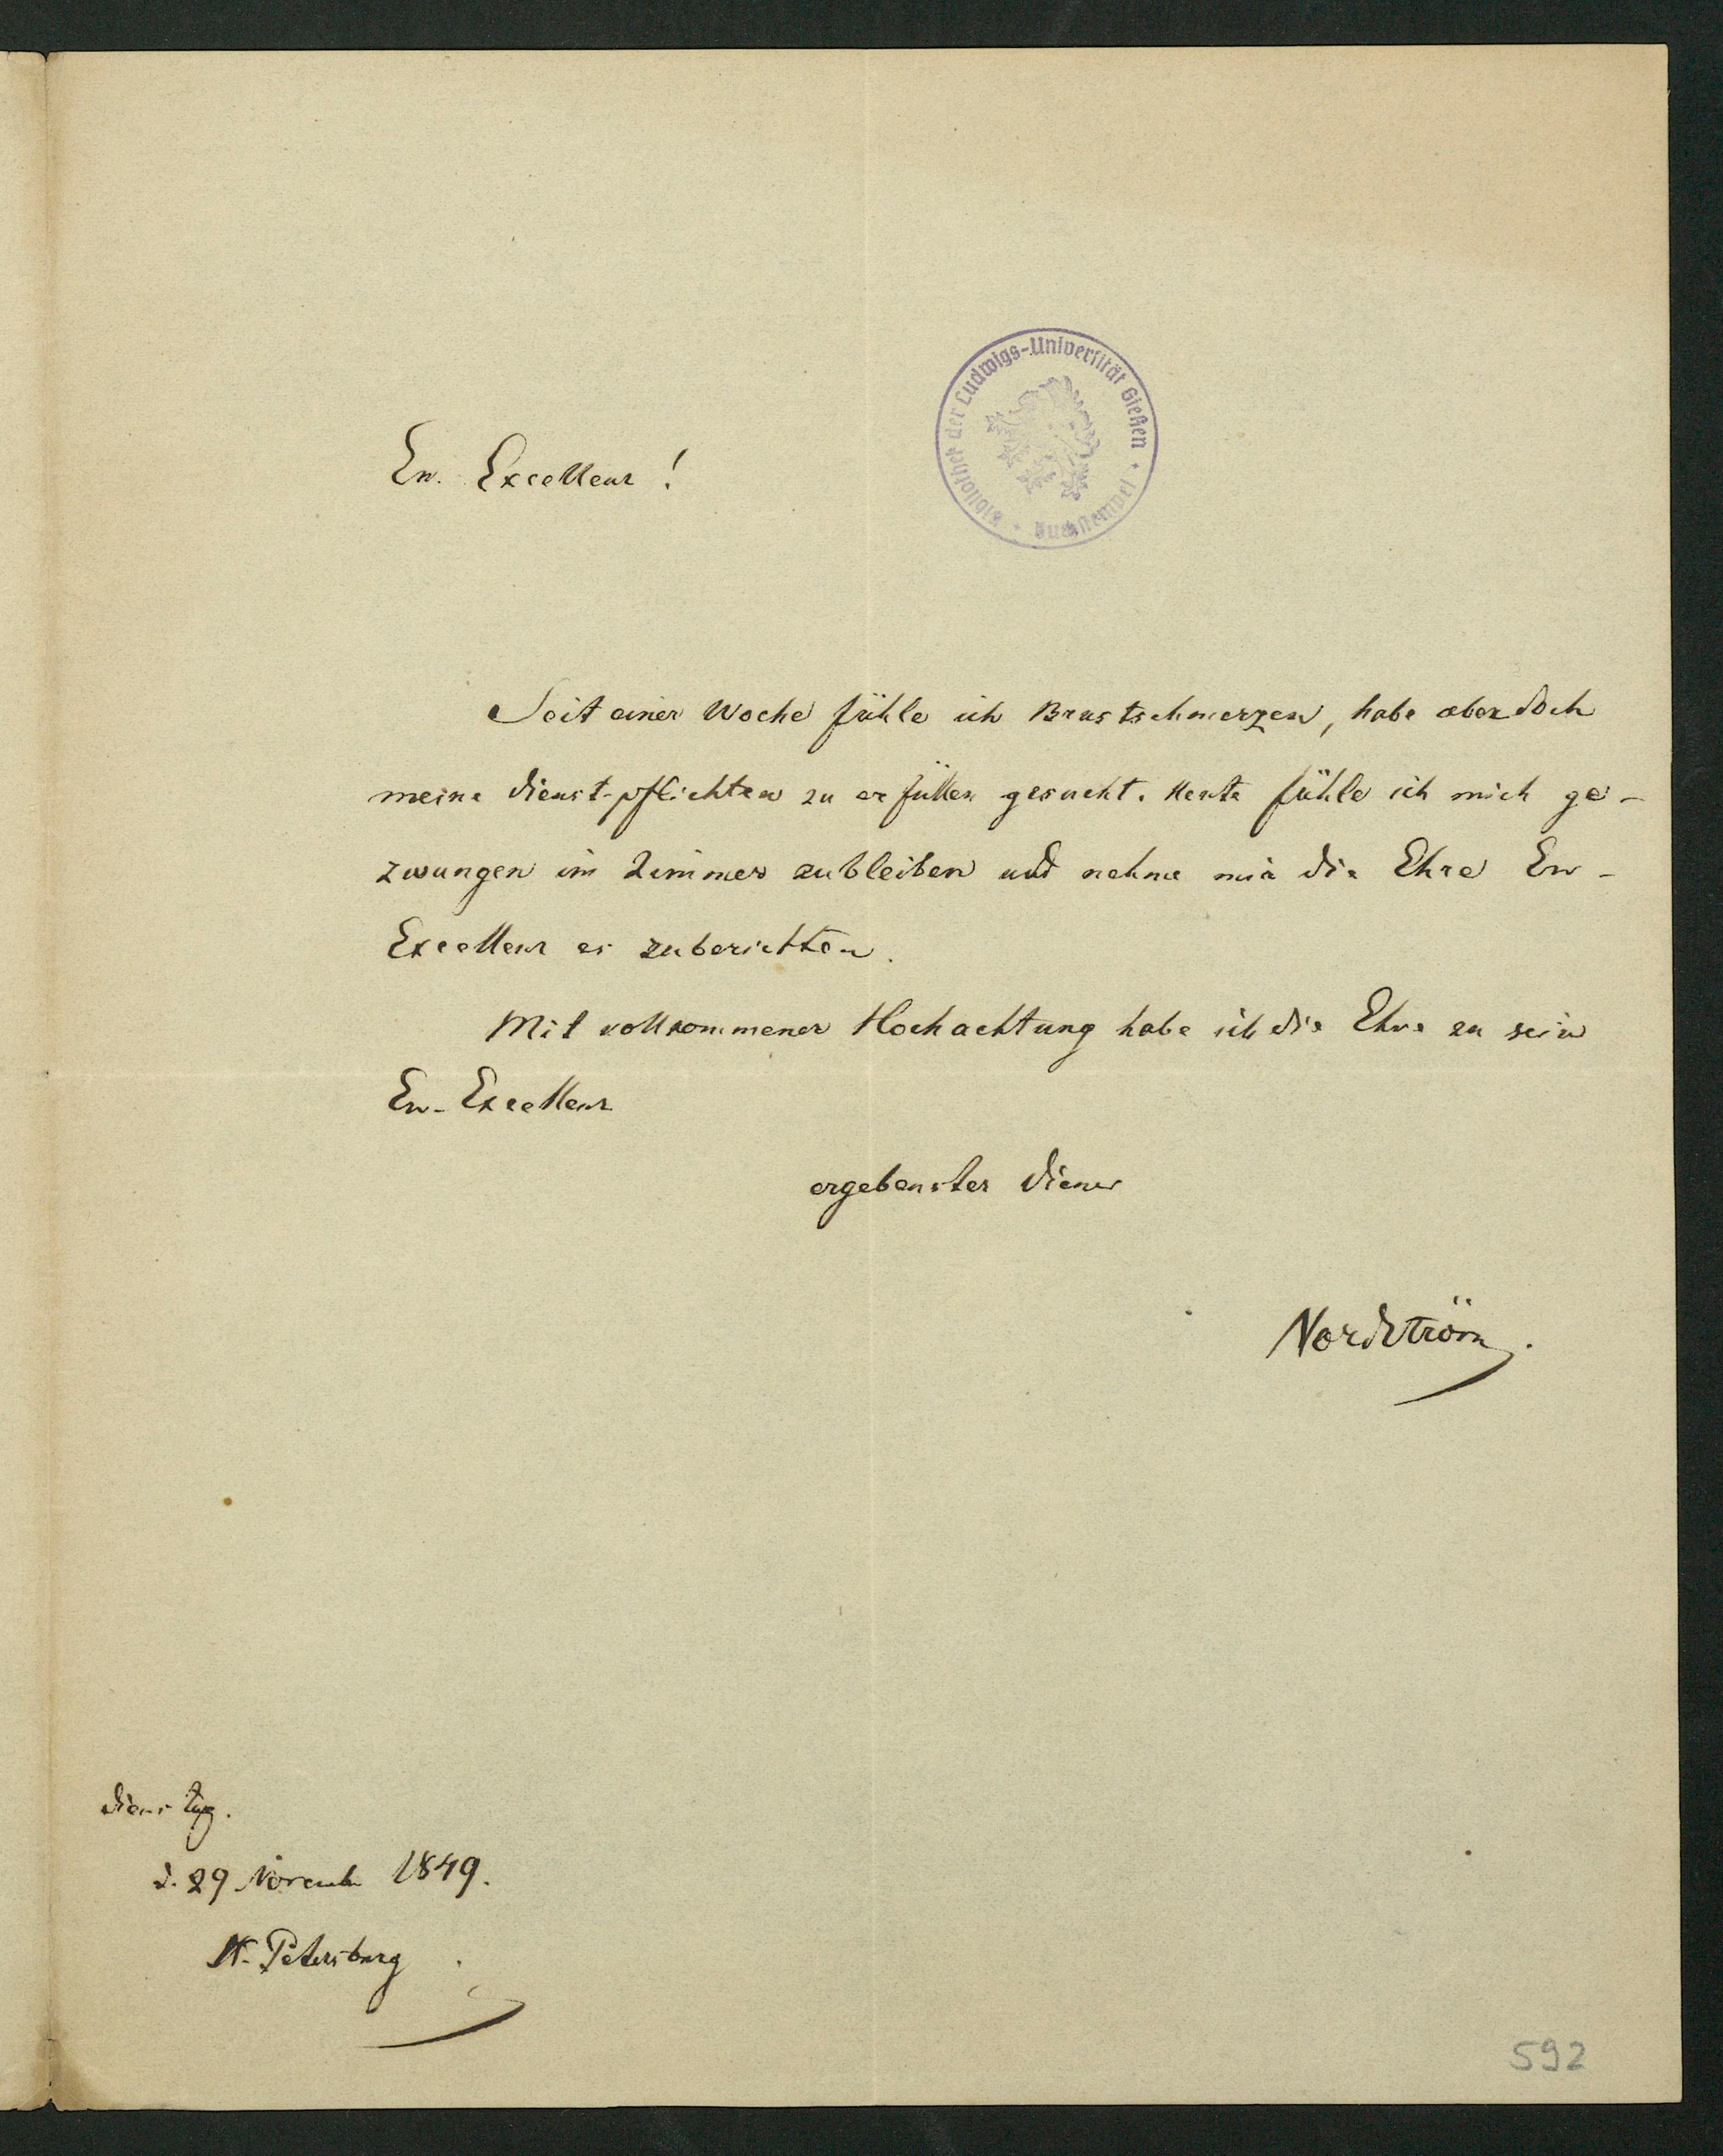 Bibliothek der Ludwigs-Universität Gießen • Buchstempel •
Ew. Excellenz!
Seit einer Woche fühle ich Brustschmerzen, habe aber doch
meine Dienst-pflichten zu erfüllen gesucht. Heute fühle ich mich ge-
zwungen im Zimmer zu bleiben und nehme mir die Ehre Ew-
Excellenz es zu berichten.
Mit vollkommener Hochachtung habe ich die Ehre zu sein
Ew- Excellenz
ergebenster Diener
Nordström.
Dienstag.
d. 29 November 1849.
St- Petersburg
592